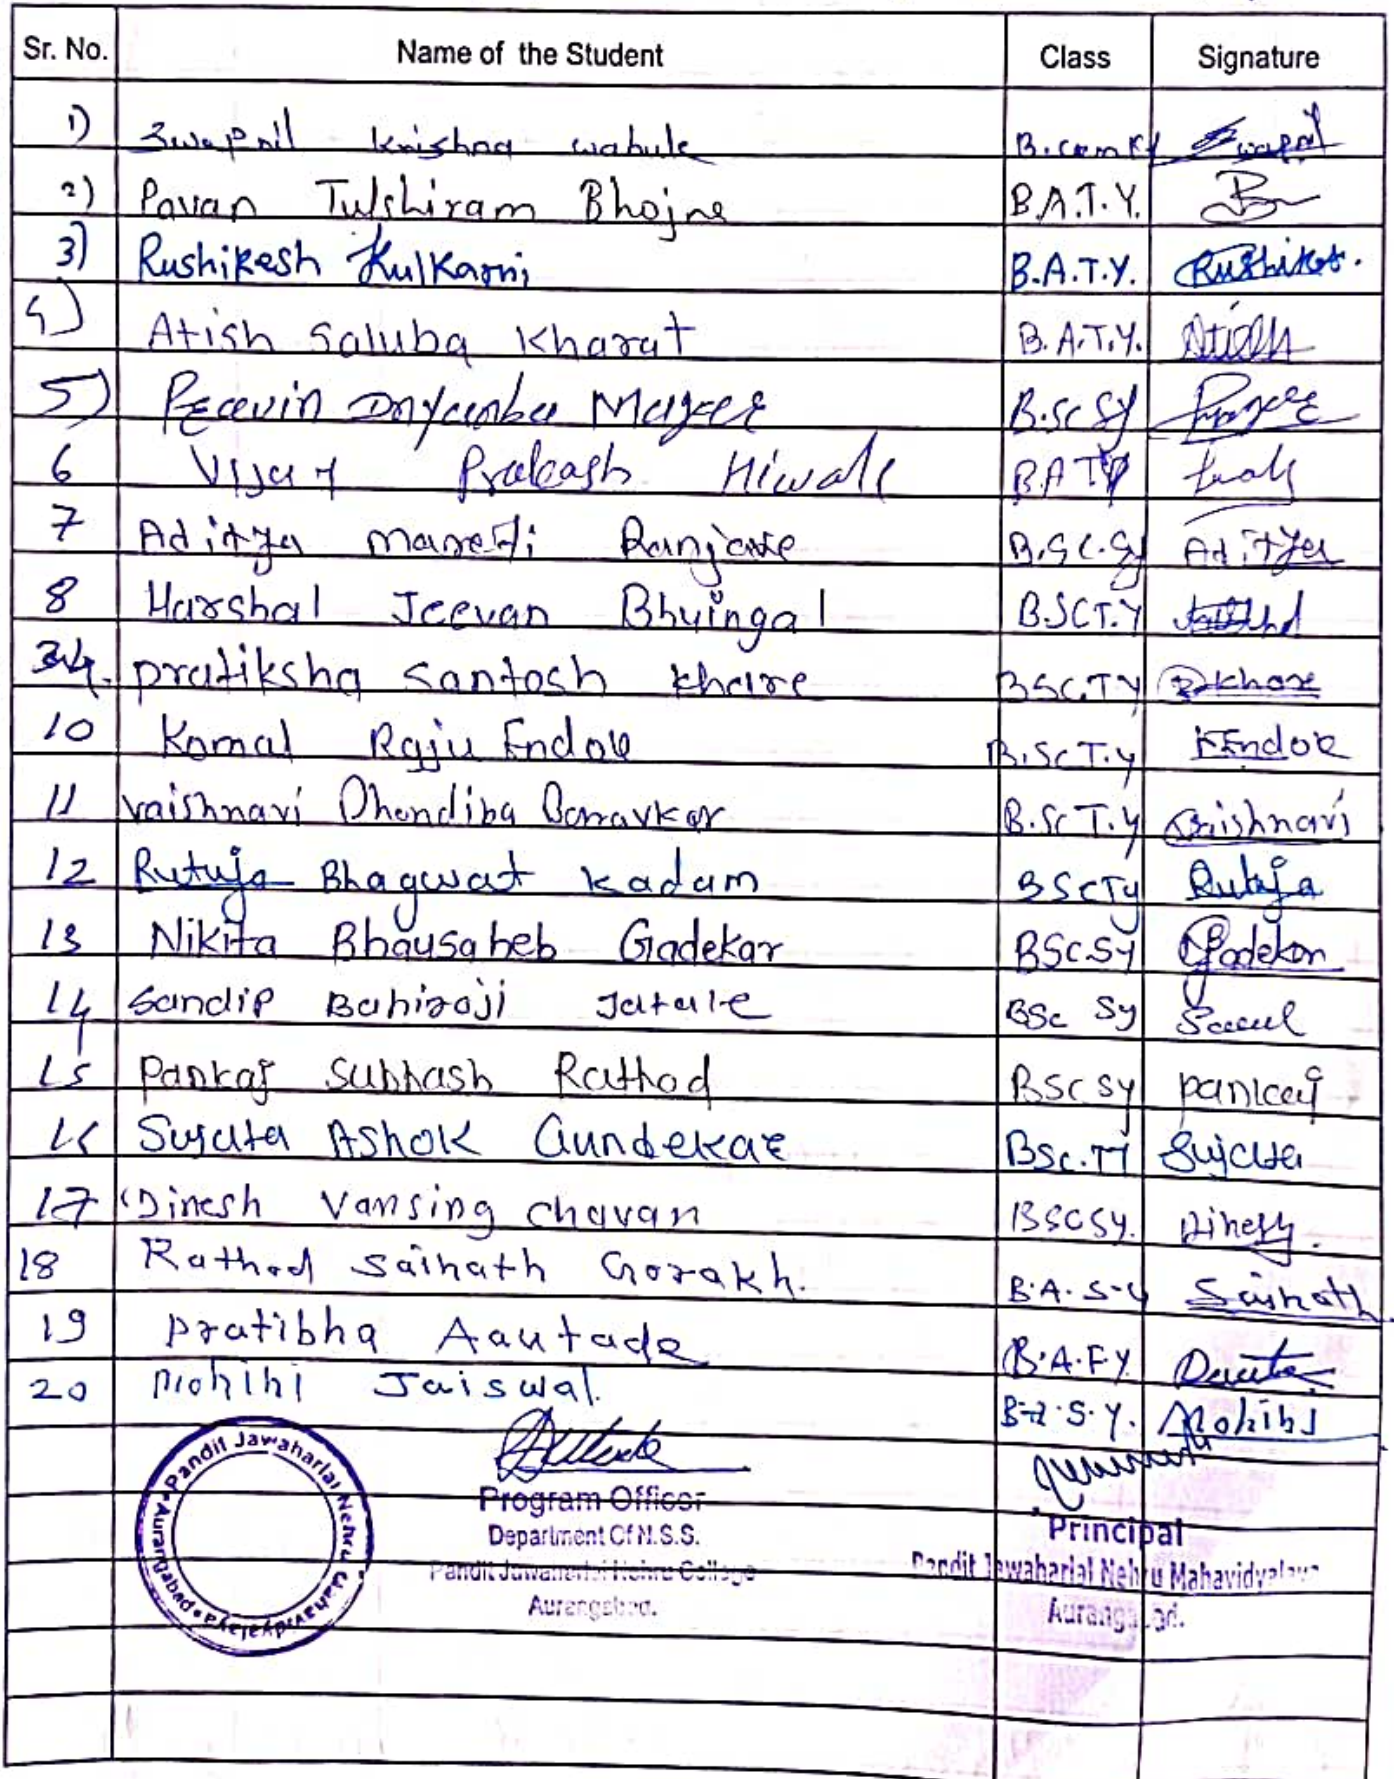 Sr. No. Name of the Student Class Signature
1) Swapnil Krishna wahule B.com Swapnil
2) Pavan Tulshiram Bhojne B.A.T.Y.
3) Rushikesh Kulkarni B.A.T.Y. Rushikesh.
4) Atish Saluba Kharat B.A.T.Y. Atish
5) B.Sc Sy
6 Vijay Prakash Hiwale B.A TY
7 Aditya Maroti Ranjave B.Sc.Sy Aditya
8 Harshal Jeevan Bhuingal BSCT.Y
pratiksha Santosh khare BSC.T.Y Pkhare
10 Komal Raju Endole B.Sc T.y KEndole
11 vaishnavi Dhondiba Banavkar B.Sc T.y Vaishnavi
12 Rutuja Bhagwat Kadam BScTy Rutuja
13 Nikita Bhausaheb Gadekar BSc.Sy Gadekar
14 Sandip Bahiroji Jatale BSc Sy
15 Pankaj Subhash Rathod BSC SY pankaj
16 Sujata Ashok Gundekar BSc.TY Sujata
17 Dinesh Vansing chavan BSC SY. Dinesh.
18 Rathod Sainath Gorakh. B.A.S-Y Sainath.
19 Pratibha Aautade B.A.F.Y.
20 Mohini Jaiswal. B.A.S.Y. Mohini
Pandit Jawaharlal Nehru Mahavidyalaya • Aurangabad •
Program Officer
Department Of N.S.S.
Pandit Jawaharlal Nehru College
Aurangabad.
Principal
Pandit Jawaharlal Nehru Mahavidyalaya
Aurangabad.